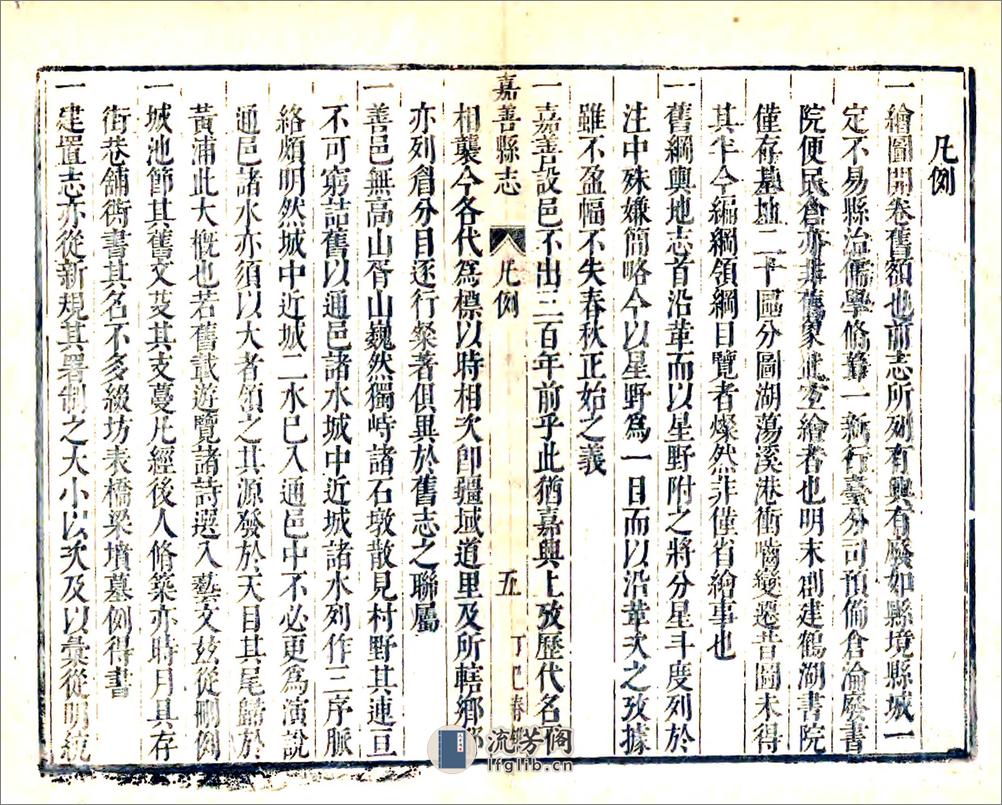 凡例
一繪圖開卷舊額也前志所列有興有廢如縣境縣城一
定不易縣治儒學脩葺一新行臺分司預備倉淪廢書
院便民倉亦非舊象此宜繪者也明末創建鶴湖書院
僅存基址二十區分圖湖蕩溪港衝嚙變遷昔圖未得
其半今編綱領綱目覽者燦然非僅省繪事也
一舊綱輿地志首沿革而以星野附之將分星斗度列於
注中殊嫌簡略今以星野爲一目而以沿革次之攷據
雖不盈幅不失春秋正始之義
一嘉善設邑不出三百年前乎此猶嘉興上攷歷代名
嘉善縣志
凡例
五
丁巳春
相襲今各代爲標以時相次卽疆域道里及所轄鄉
亦列眉分目逐行粲著俱異於舊志之聯屬
一善邑無高山胥山巍然獨峙諸石墩散見村野其連亘
不可窮詰舊以通邑諸水城中近城諸水列作三序脈
絡頗明然城中近城二水已入通邑中不必更爲演說
通邑諸水亦須以大者領之其源發於天目其尾歸於
黃浦此大概也若舊載遊覽諸詩選入藝文玆從刪例
一城池節其舊文芟其支蔓凡經後人脩築亦時月具存
街巷舖衖書其名不多綴坊表橋梁墳墓例得書
一建置志亦從新規其署制之大小以次及以彙從明統
流芳阁
lfglib.cn